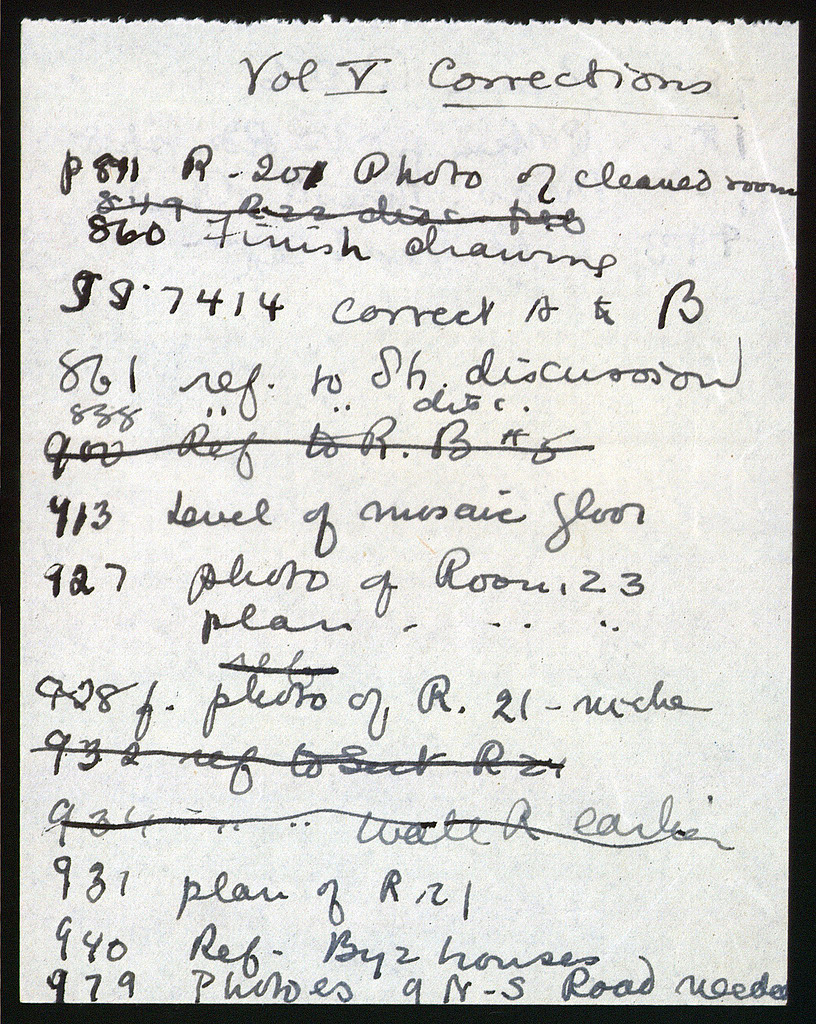 Vol V Corrections
p 841 R-201 Photo of cleaned room
849 R 22 disc.
860 Finish drawing
SS. 7414 correct A & B
861 ref. to Sh. discussion
838 " " disc.
900 Ref to R. B #5
913 Level of mosaic floor
927 photo of Room 23
plan " " "
928 f. photo of R. 21 - niche
932 ref to Sect R 21
" " wall A earlier
931 plan of R 21
940 Ref. Byz houses
979 Photoes of N-S Road needed